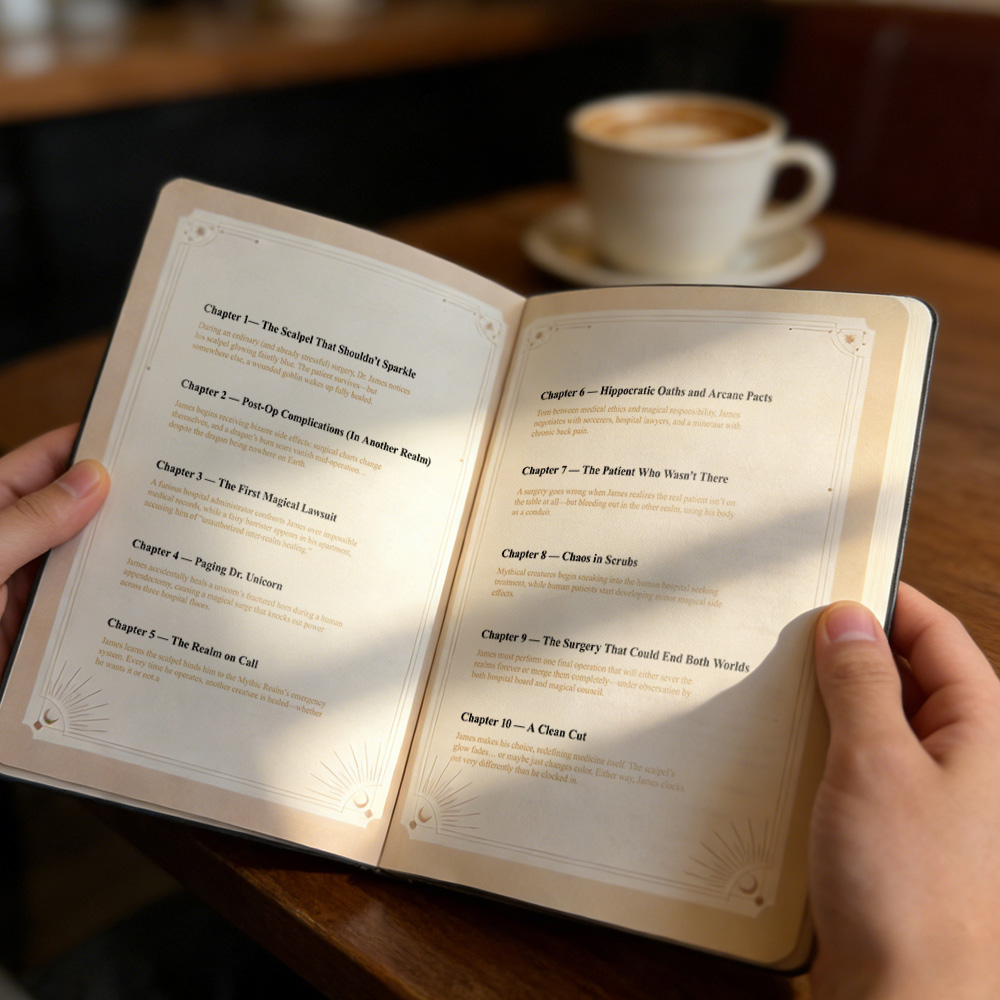 Chapter 1— The Scalpel That Shouldn't Sparkle
During an ordinary (and already stressful) surgery, Dr. James notices
his scalpel glowing faintly blue. The patient survives—but
somewhere else, a wounded goblin wakes up fully healed.
Chapter 2 — Post-Op Complications (In Another Realm)
James begins receiving bizarre side effects: surgical charts change
themselves, and a dragon's burn scars vanish mid-operation...
despite the dragon being nowhere on Earth.
Chapter 3 — The First Magical Lawsuit
A furious hospital administrator confronts James over impossible
medical records, while a fairy barrister appears in his apartment,
accusing him of "unauthorized inter-realm healing."
Chapter 4 — Paging Dr. Unicorn
James accidentally heals a unicorn's fractured horn during a human
appendectomy, causing a magical surge that knocks out power
across three hospital floors.
Chapter 5 — The Realm on Call
James learns the scalpel binds him to the Mythic Realm's emergency
system. Every time he operates, another creature is healed—whether
he wants it or not.a
Chapter 6 — Hippocratic Oaths and Arcane Pacts
Torn between medical ethics and magical responsibility, James
negotiates with sorcerers, hospital lawyers, and a minotaur with
chronic back pain.
Chapter 7 — The Patient Who Wasn't There
A surgery goes wrong when James realizes the real patient isn't on
the table at all—but bleeding out in the other realm, using his body
as a conduit.
Chapter 8 — Chaos in Scrubs
Mythical creatures begin sneaking into the human hospital seeking
treatment, while human patients start developing minor magical side
effects.
Chapter 9 — The Surgery That Could End Both Worlds
James must perform one final operation that will either sever the
realms forever or merge them completely—under observation by
both hospital board and magical council.
Chapter 10 — A Clean Cut
James makes his choice, redefining medicine itself. The scalpel's
glow fades... or maybe just changes color. Either way, James clocks
out very differently than he clocked in.